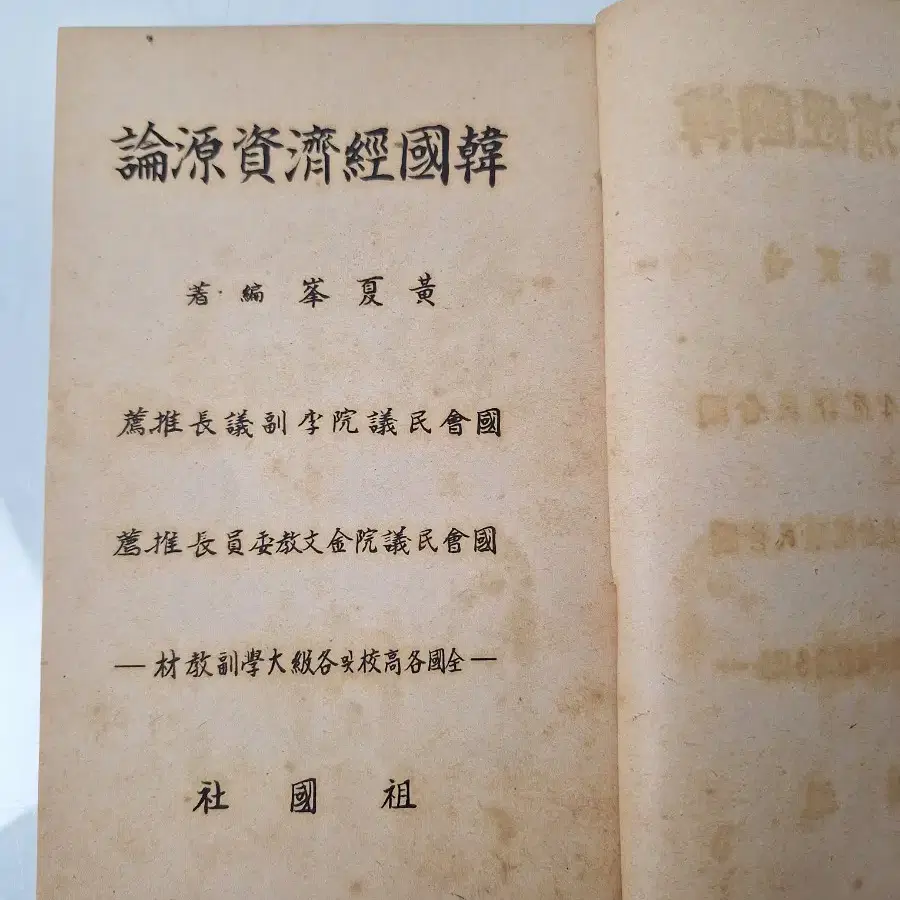 韓國經濟資源論
黃夏峯 編·著
國會民議院李副議長推薦
國會民議院金文教委員長推薦
—全國各高校및各級大學副教材—
祖國社